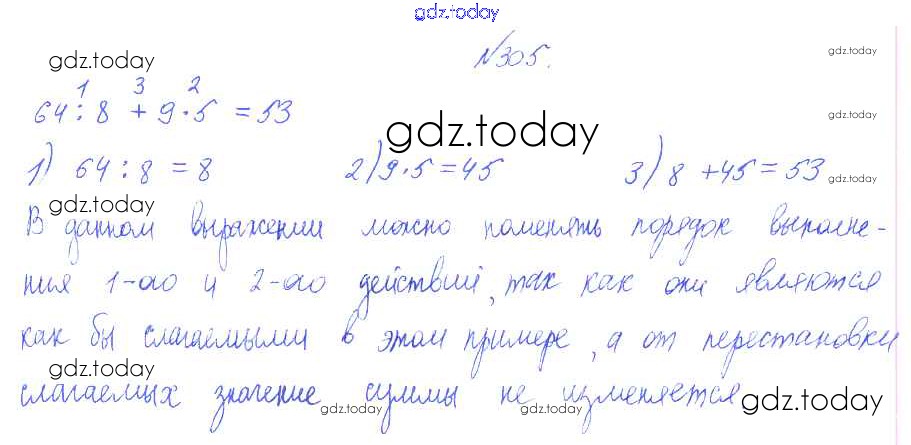 gdz.today
№305.
gdz.today
gdz.today
1 3 2
64 : 8 + 9 · 5 = 53
gdz.today
1) 64 : 8 = 8 2) 9 · 5 = 45 3) 8 + 45 = 53
gdz.today
gdz.today
В данном выражении можно поменять порядок выполне-
ния 1-ого и 2-ого действий, так как они являются
как бы слагаемыми в этом примере, а от перестановки
gdz.today
слагаемых значение суммы не изменяется
gdz.today
gdz.today
gdz.today